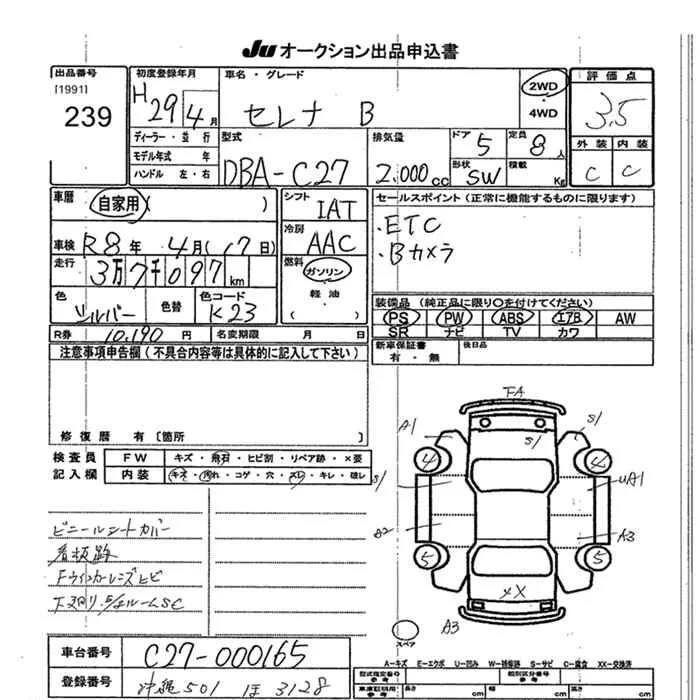 JU オークション出品申込書
出品番号
[1991]
239
初度登録年月
H29 4月
ディーラー・並行
モデル年式 年
ハンドル 左・右
車名・グレード
セレナ B
2WD
・
4WD
評価点
3.5
外装 内装
C C
型式
DBA-C27
排気量
2.000cc
ドア
5
形状
SW
定員
8人
積載
Kg
車歴
自家用( )
車検 R8年 4月(17日)
走行
3万7千097km
色
シルバー
色替
色コード
K23
シフト
IAT
冷房
AAC
燃料
ガソリン
軽油
( )
セールスポイント(正常に機能するものに限ります)
・ETC
・Bカメラ
装備品(純正品に限り○を付けてください)
PS PW ABS エアB AW
SR ナビ TV カワ
新車保証書
有・無
後日品
R券 10,190円 名変期限 月 日
注意事項申告欄(不具合内容等は具体的に記入して下さい)
修復歴 有〔箇所 〕
検査員
記入欄
FW キズ・飛石・ヒビ割・リペア跡・×要
内装 キズ・汚れ・コゲ・穴・スレ・キレ・破レ
ビニールシートカバー
看板跡
Fウインカーレンズヒビ
FA
A1
S1
S1
4
4
S1
UA1
A2
A3
5
5
XX
A3
スペア
A-キズ E-エクボ U-凹み W-補修跡 S-サビ C-腐食 XX-交換済
車台番号
C27-000165
登録番号
沖縄501 ほ 3128
型式指定番の
参考
類別区分番号
参考
車庫証明用
参考
長さ
cm
幅
cm
高さ
cm